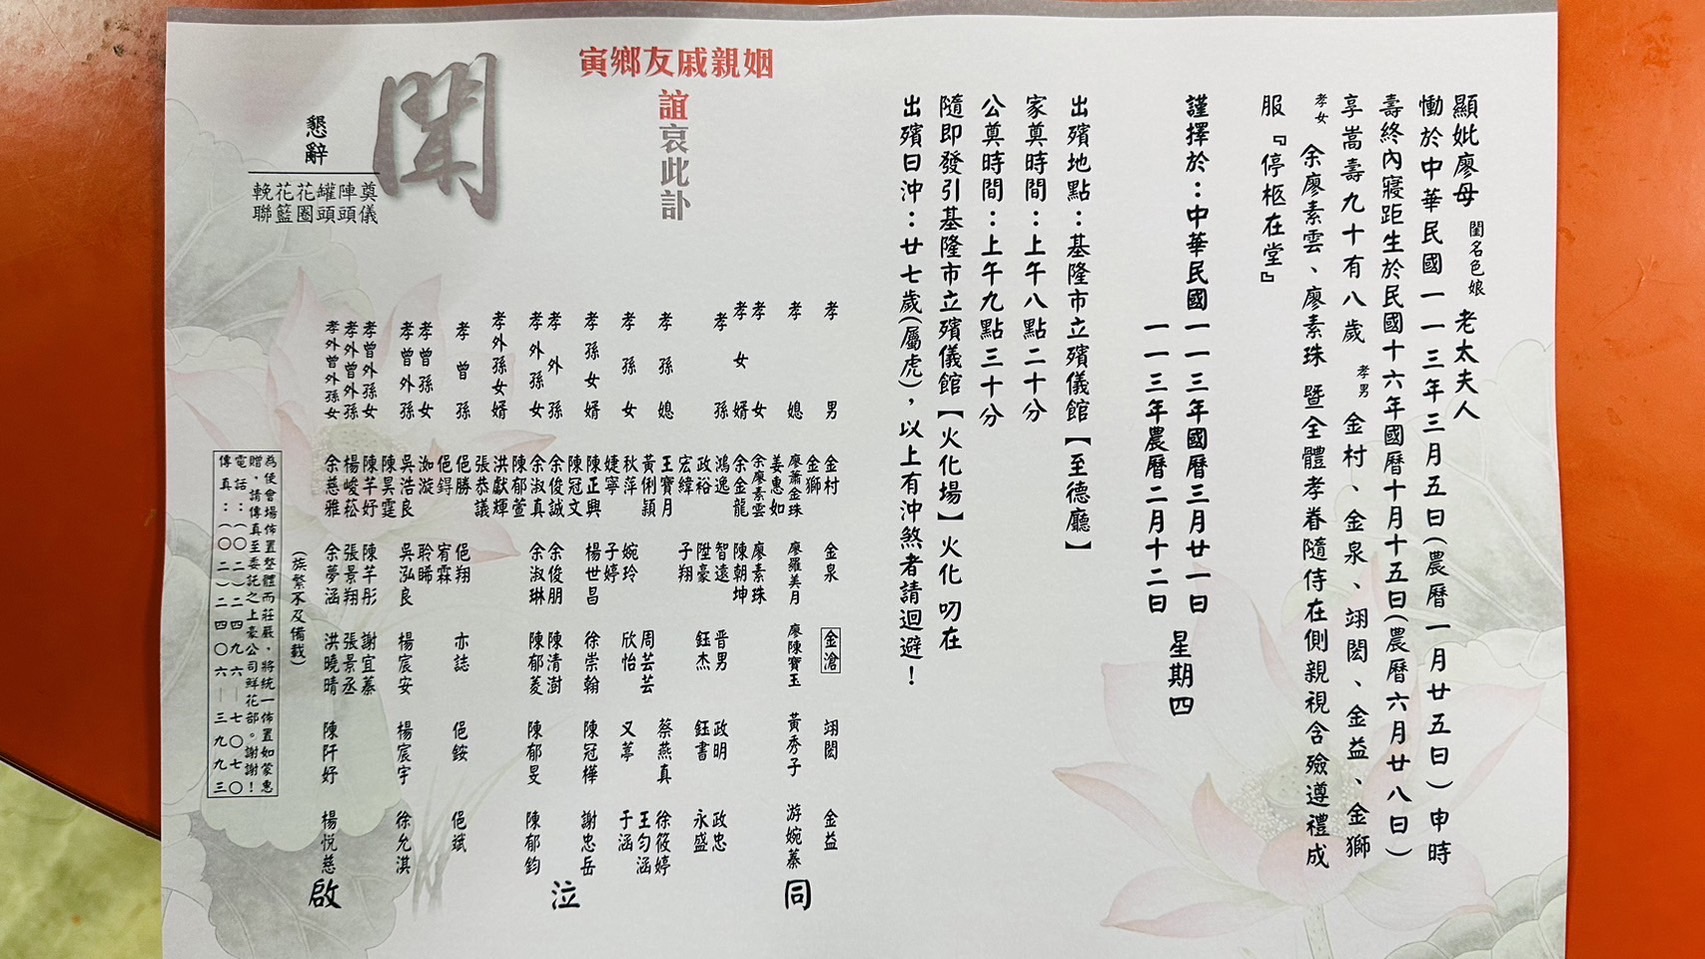 顯妣廖母 閨名色娘 老太夫人
慟於中華民國一一三年三月五日(農曆一月廿五日)申時
壽終內寢距生於民國十六年國曆十月十五日(農曆六月廿八日)
享嵩壽九十有八歲 孝男 金村、金泉、翊閎、金益、金獅
孝女 余廖素雲、廖素珠 暨全體孝眷隨侍在側親視含殮遵禮成
服『停柩在堂』
謹擇於：中華民國一一三年國曆三月廿一日
一一三年農曆二月十二日
星期四
出殯地點：基隆市立殯儀館【至德廳】
家奠時間：上午八點二十分
公奠時間：上午九點三十分
隨即發引基隆市立殯儀館【火化場】火化 叨在
出殯日沖：廿七歲(屬虎)，以上有沖煞者請迴避！
姻親戚友鄉寅
誼哀此訃
聞
懇辭
奠儀
陣頭
罐頭
花圈
花籃
輓聯
孝男 金村 金泉 金滄 翊閎 金益
金獅
孝媳 廖蕭金珠 廖羅美月 廖陳寶玉 黃秀子 游婉蓁
姜惠如
孝女 余廖素雲 廖素珠
孝女婿 余金龍 陳朝坤
孝孫 鴻逸 智遠 晋男 政明 政忠
政裕 陞豪 鈺杰 鈺書 永盛
宏緯 子翔
孝孫媳 王寶月 周芸芸 蔡燕真 徐筱婷
黃俐穎 王勻涵
孝孫女 秋萍 婉玲 欣怡 又葶 于涵
婕寧 子婷
孝孫女婿 陳正興 楊世昌 徐崇翰 陳冠樺 謝忠岳
陳冠文
孝外孫 余俊誠 余俊朋 陳清澍
孝外孫女 余淑真 余淑琳 陳郁菱 陳郁旻 陳郁鈞
陳郁萱
孝外孫女婿 洪獻輝
張恭議
孝曾孫 俋勝 俋翔 亦誌 俋銨 俋斌
俋鍀 宥霖
孝曾孫女 洳漩 聆晞
孝曾外孫 吳浩良 吳泓良 楊宸安 楊宸宇 徐允淇
陳昊霆
孝曾外孫女 陳芊妤 陳芊彤 謝宜蓁
孝外曾外孫 楊峻菘 張景翔 張景丞
孝外曾外孫女 余慈雅 余夢涵 洪曉晴 陳阡妤 楊悅慈
同
泣
啟
(族繁不及備載)
為使會場佈置整體而莊嚴，將統一佈置如蒙惠
贈，請傳真至委託之上豪公司鮮花部。謝謝！
電話：(〇二)二四九六—七〇七〇
傳真：(〇二)二四〇六—三九九三